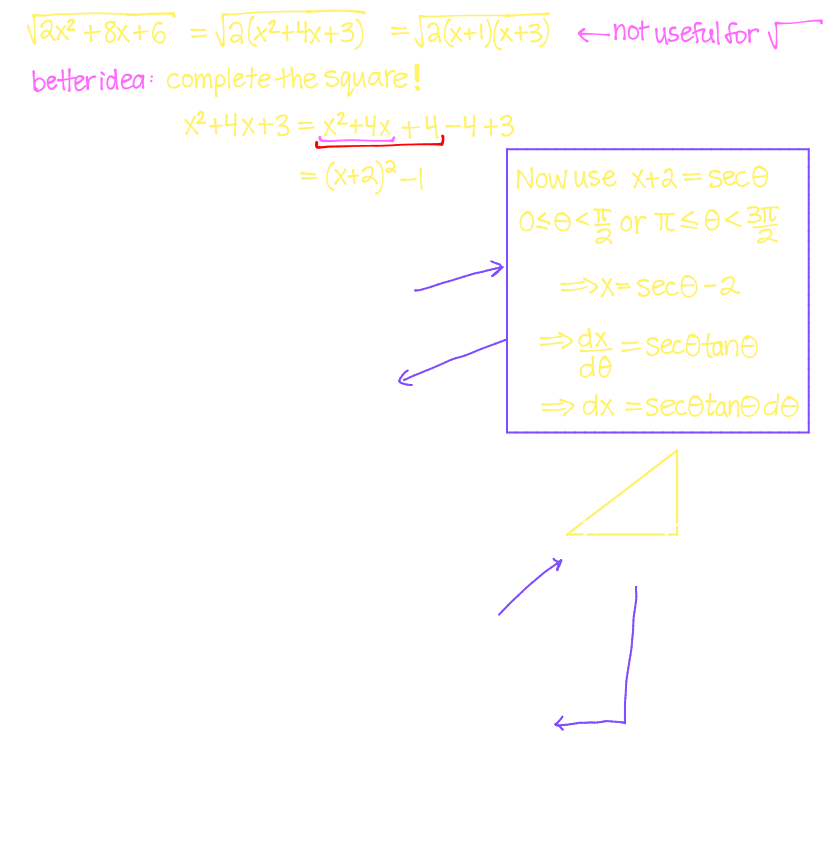 √(2x² + 8x + 6) = √(2(x²+4x+3)) = √(2(x+1)(x+3)) ← not useful for √
better idea: complete the square!
x²+4x+3 = x²+4x +4 -4 +3
= (x+2)² -1
Now use x+2 = secθ
0 ≤ θ < π/2 or π ≤ θ < 3π/2
⟹ x = secθ - 2
⟹ dx/dθ = secθtanθ
⟹ dx = secθtanθdθ